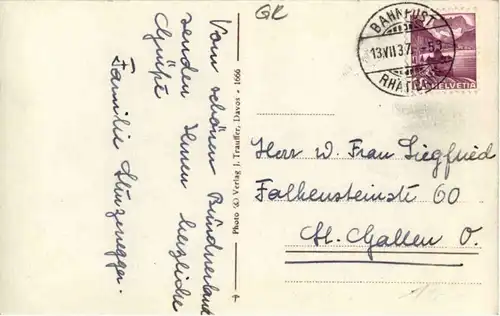 GR
BAHNPOST
13.VII.37.–53
HELVETIA
Vom schönen Bündnerland
senden Ihnen herzliche
Grüße
Familie Sturzenegger.
Photo & Verlag J. Trauffer, Davos - 1966
4
Herr u. Frau Siegfried
Falkensteinstr 60
St. Gallen O.